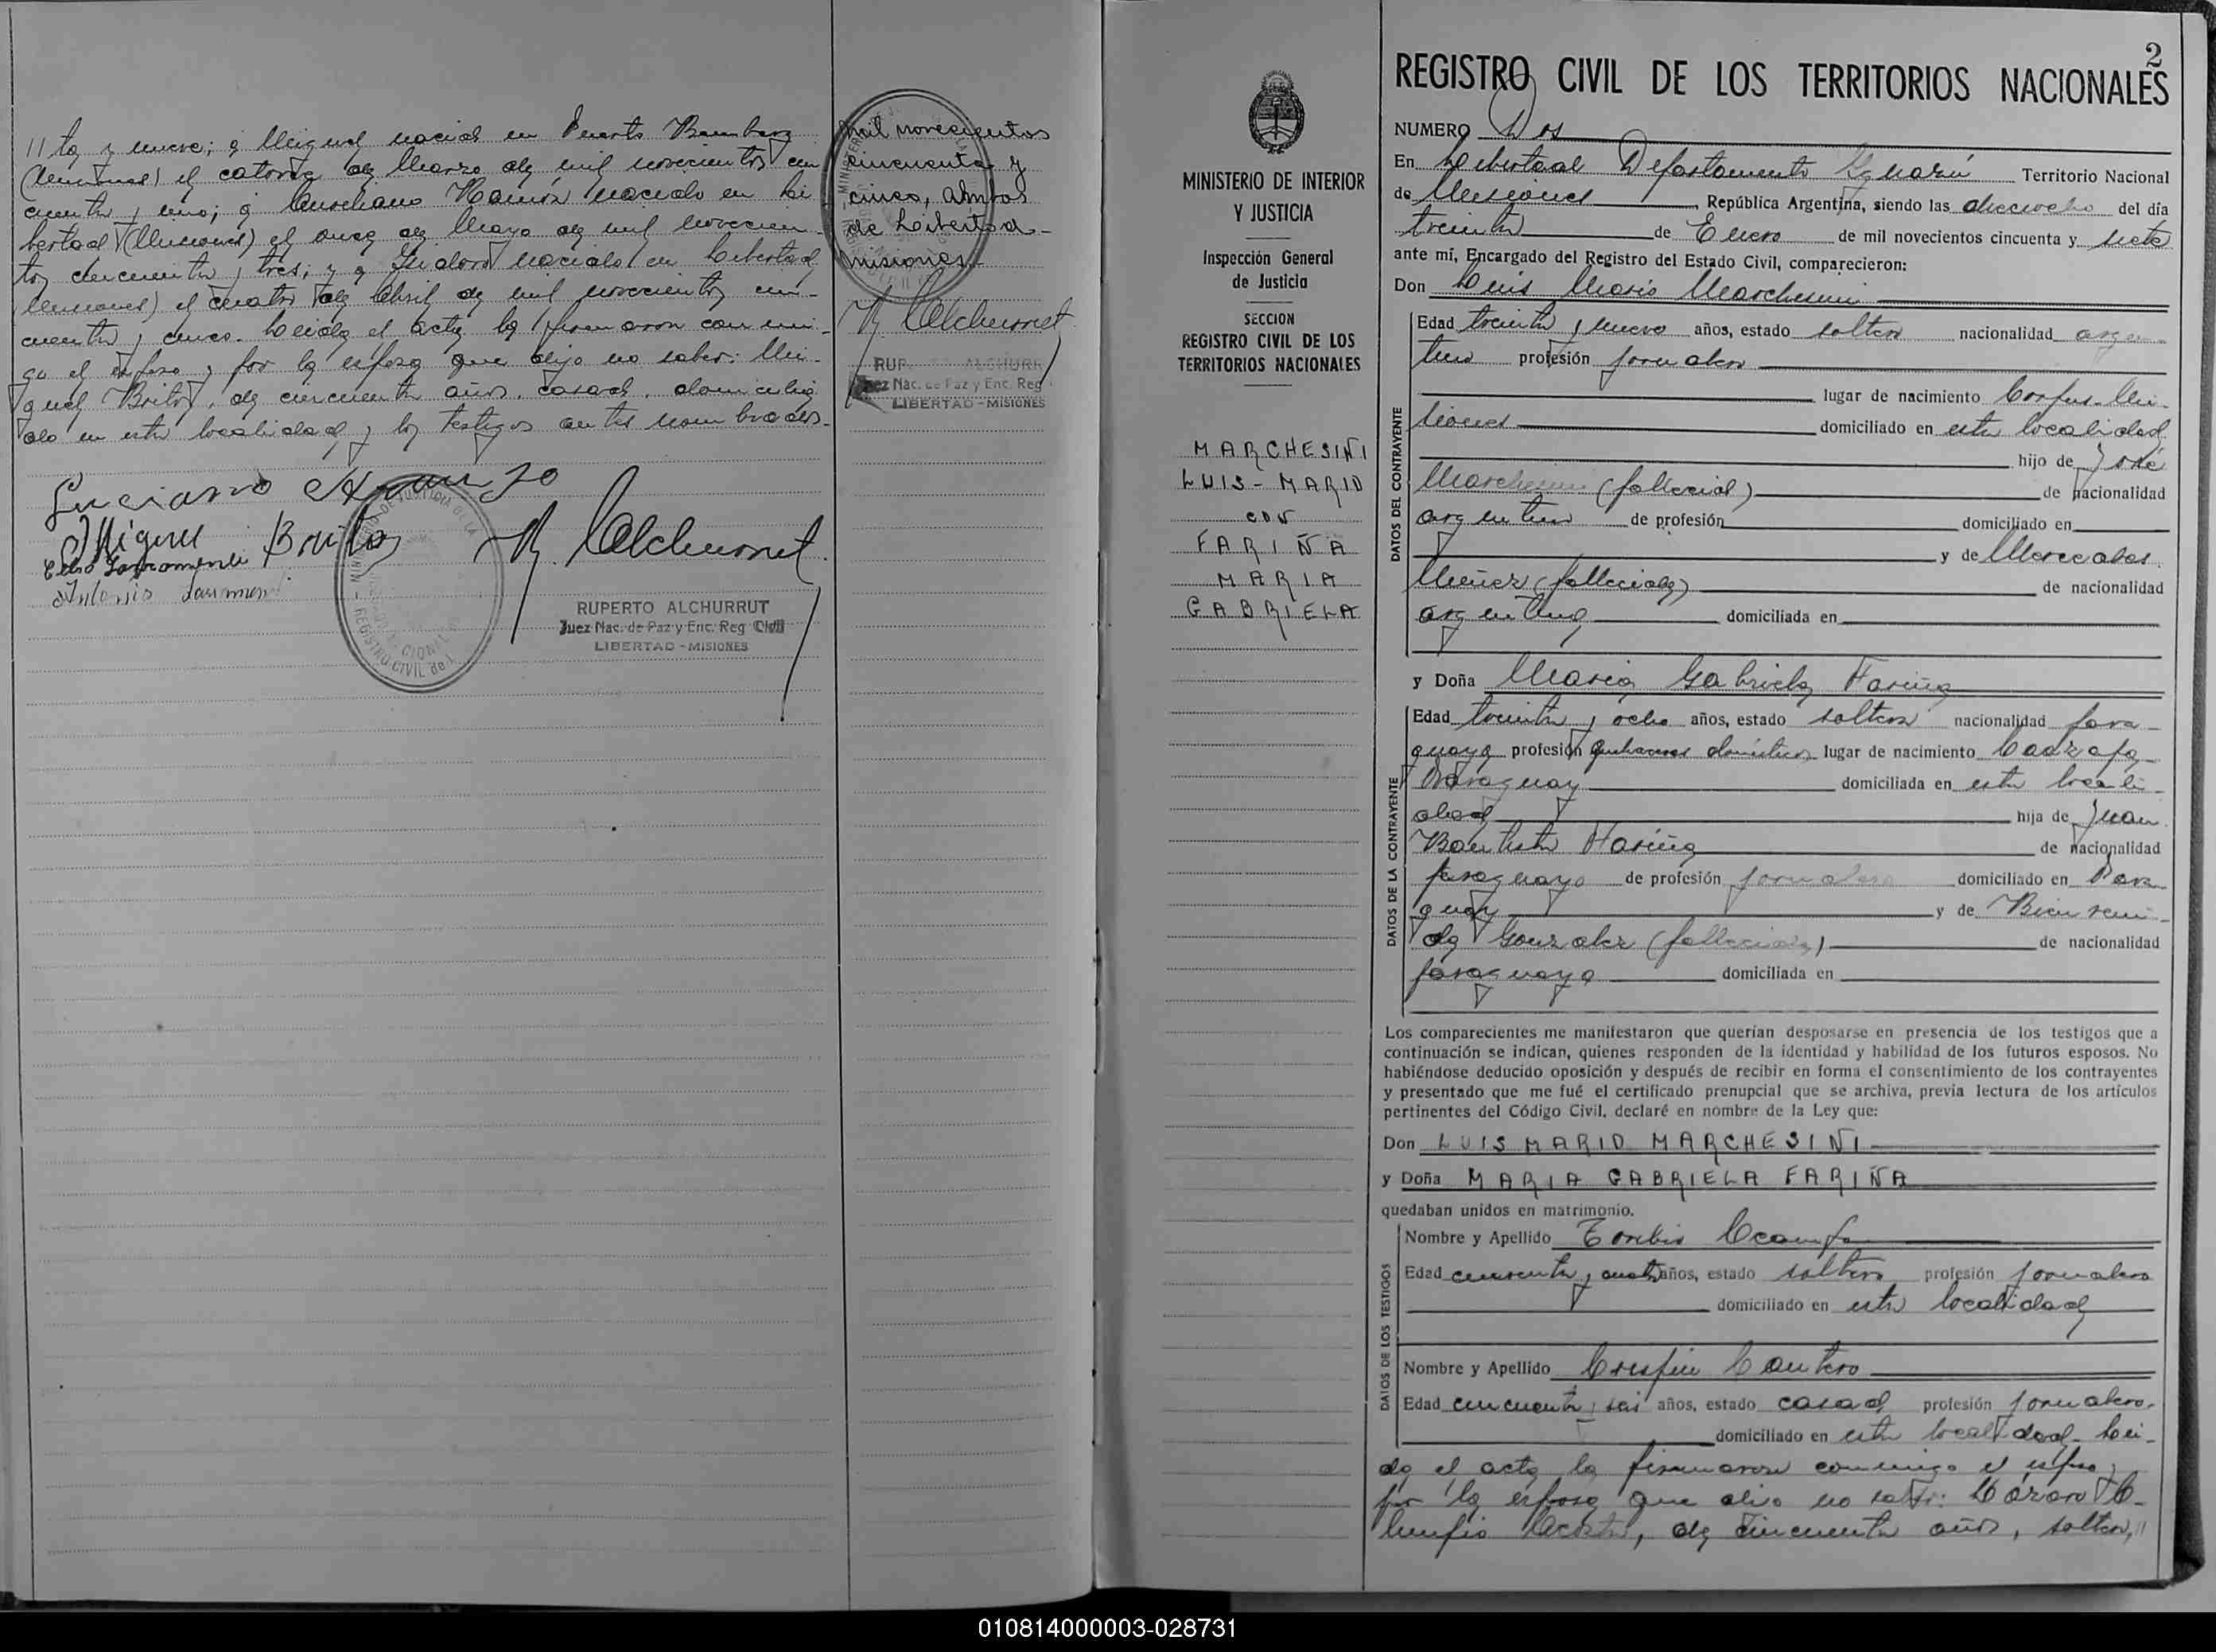 // ta y nueve; a Miguel nacido en Puerto Bemberg
(Misiones) el catorce de Marzo de mil novecientos cin
cuenta y uno; a Ramón nacido en Li
bertad (Misiones) el once de Mayo de mil novecien-
tos cincuenta y tres; y a Isidoro nacido en Libertad
(Misiones) el cuatro de Abril de mil novecientos cin-
cuenta y cinco. Leida el acta la firmaron conmi-
go el esposo y por la esposa que dijo no saber: Mi-
guel Brito, de cincuenta años, casado, domicilia
do en esta localidad y los testigos antes nombrados.-
Luciano
Miguel Brito
Antonio
R Alchurrut
RUPERTO ALCHURRUT
Juez Nac. de Paz y Enc. Reg Civil
LIBERTAD - MISIONES
mil novecientos
cincuenta y
cinco, ambos
de Libertad-
misiones.-
R Alchurrut
RUP ALCHURR
ez Nac. de Paz y Enc. Reg
LIBERTAD - MISIONES
MINISTERIO DE INTERIOR
Y JUSTICIA
Inspección General
de Justicia
SECCION
REGISTRO CIVIL DE LOS
TERRITORIOS NACIONALES
MARCHESIÑI
LUIS - MARIO
CON
FARIÑA
MARIA
GABRIELA
2
REGISTRO CIVIL DE LOS TERRITORIOS NACIONALES
NUMERO Dos
En Libertad Departamento Iguazú Territorio Nacional
de Misiones, República Argentina, siendo las dieciocho del día
treinta de Enero de mil novecientos cincuenta y siete
ante mí, Encargado del Registro del Estado Civil, comparecieron:
Don Luis Mario Marchesini
DATOS DEL CONTRAYENTE
Edad treinta y nueve años, estado soltero nacionalidad argen-
tino profesión jornalero
lugar de nacimiento Corpus-Mi-
siones domiciliado en esta localidad
hijo de José
Marchesini (fallecido) de nacionalidad
argentino de profesión domiciliado en
y de Mercedes
(fallecida) de nacionalidad
argentina domiciliada en
y Doña Maria Gabriela Fariña
DATOS DE LA CONTRAYENTE
Edad treinta y ocho años, estado soltera nacionalidad para-
guaya profesión quehaceres domésticos lugar de nacimiento Caazapa-
Paraguay domiciliada en esta locali-
dad hija de Juan
Bautista Fariña de nacionalidad
paraguayo de profesión jornalero domiciliado en Para
guay y de Bienveni-
da Gonzalez (fallecida) de nacionalidad
paraguaya domiciliada en
Los comparecientes me manifestaron que querían desposarse en presencia de los testigos que a
continuación se indican, quienes responden de la identidad y habilidad de los futuros esposos. No
habiéndose deducido oposición y después de recibir en forma el consentimiento de los contrayentes
y presentado que me fué el certificado prenupcial que se archiva, previa lectura de los artículos
pertinentes del Código Civil, declaré en nombre de la Ley que:
Don LUIS MARIO MARCHESIÑI
y Doña MARIA GABRIELA FARIÑA
quedaban unidos en matrimonio.
DATOS DE LOS TESTIGOS
Nombre y Apellido Toribio Ocampo
Edad cincuenta y cuatro años, estado soltero profesión jornalero
domiciliado en esta localidad
Nombre y Apellido Crespin Cantero
Edad cincuenta y seis años, estado casado profesión jornalero.
domiciliado en esta localidad. Lei-
da el acta la firmaron conmigo el esposo y
por la esposa que dijo no saber: Lázaro
Acosta, de cincuenta años, soltero, //
010814000003-028731